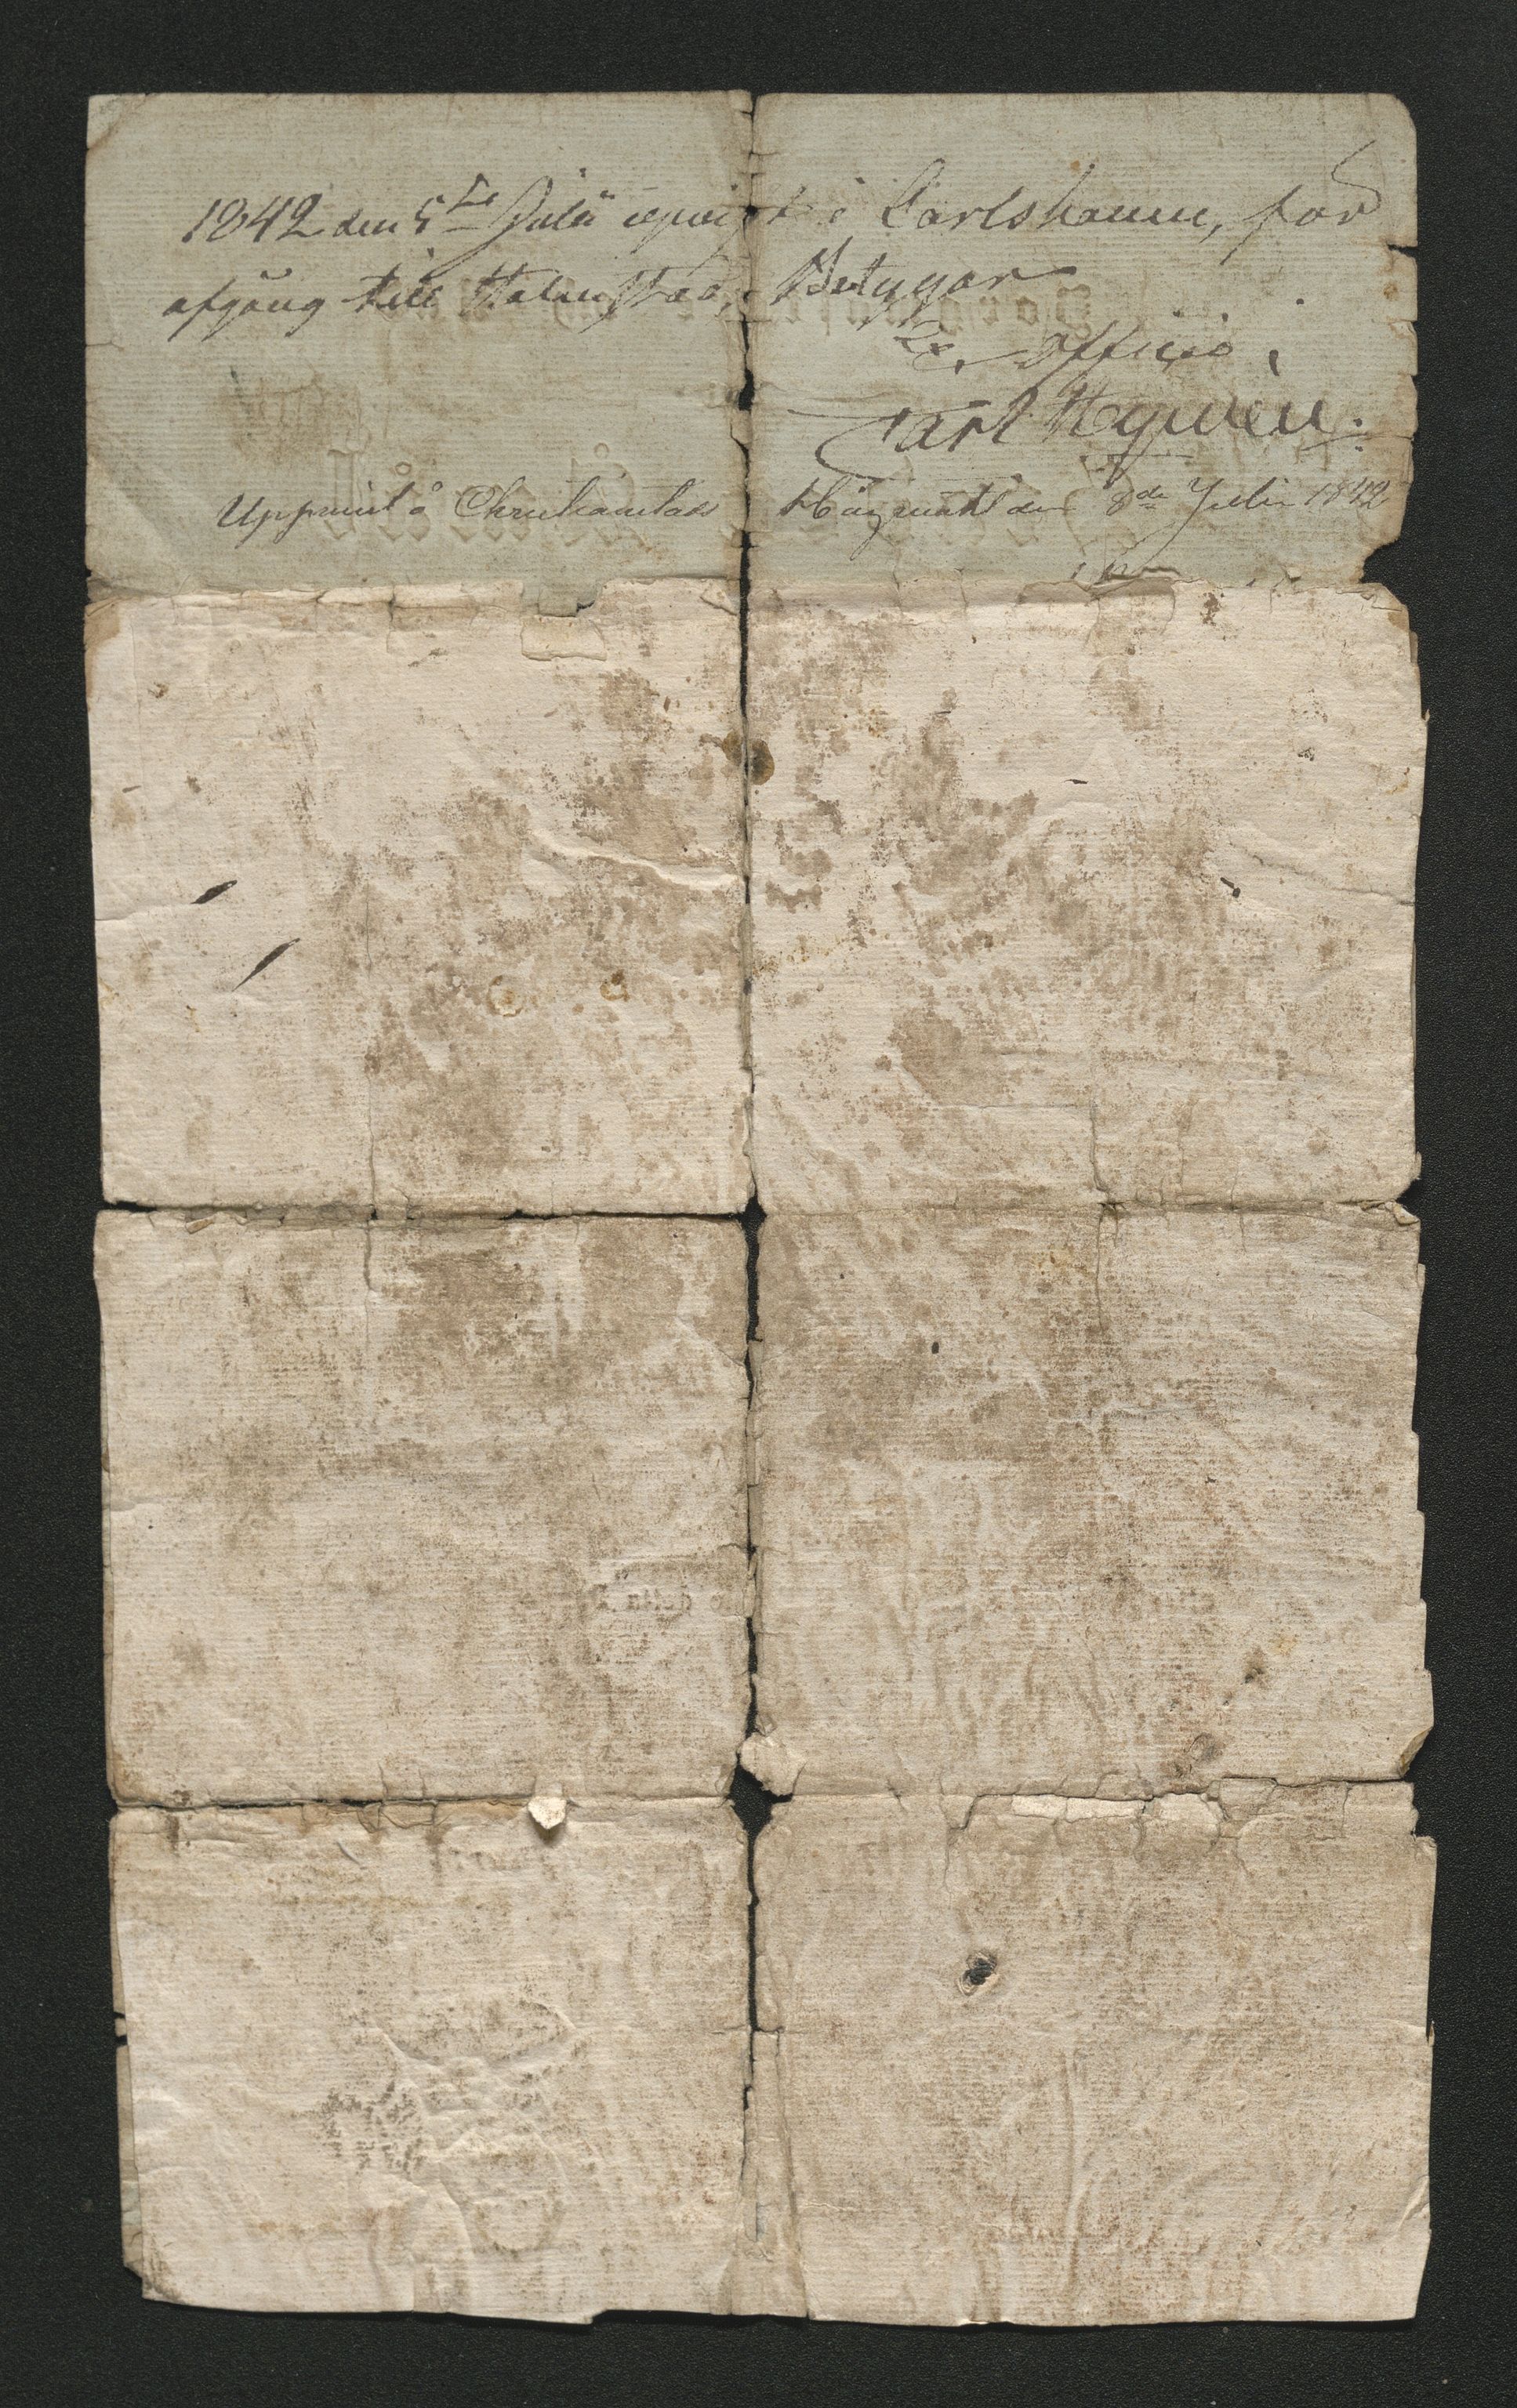 1842 den 5te Julii upvist i Carlshamn, för
afgång till Halmstad, Betygar
Ex officio,
Carl
Uppvist å Christianstads den 8de Julii 1842